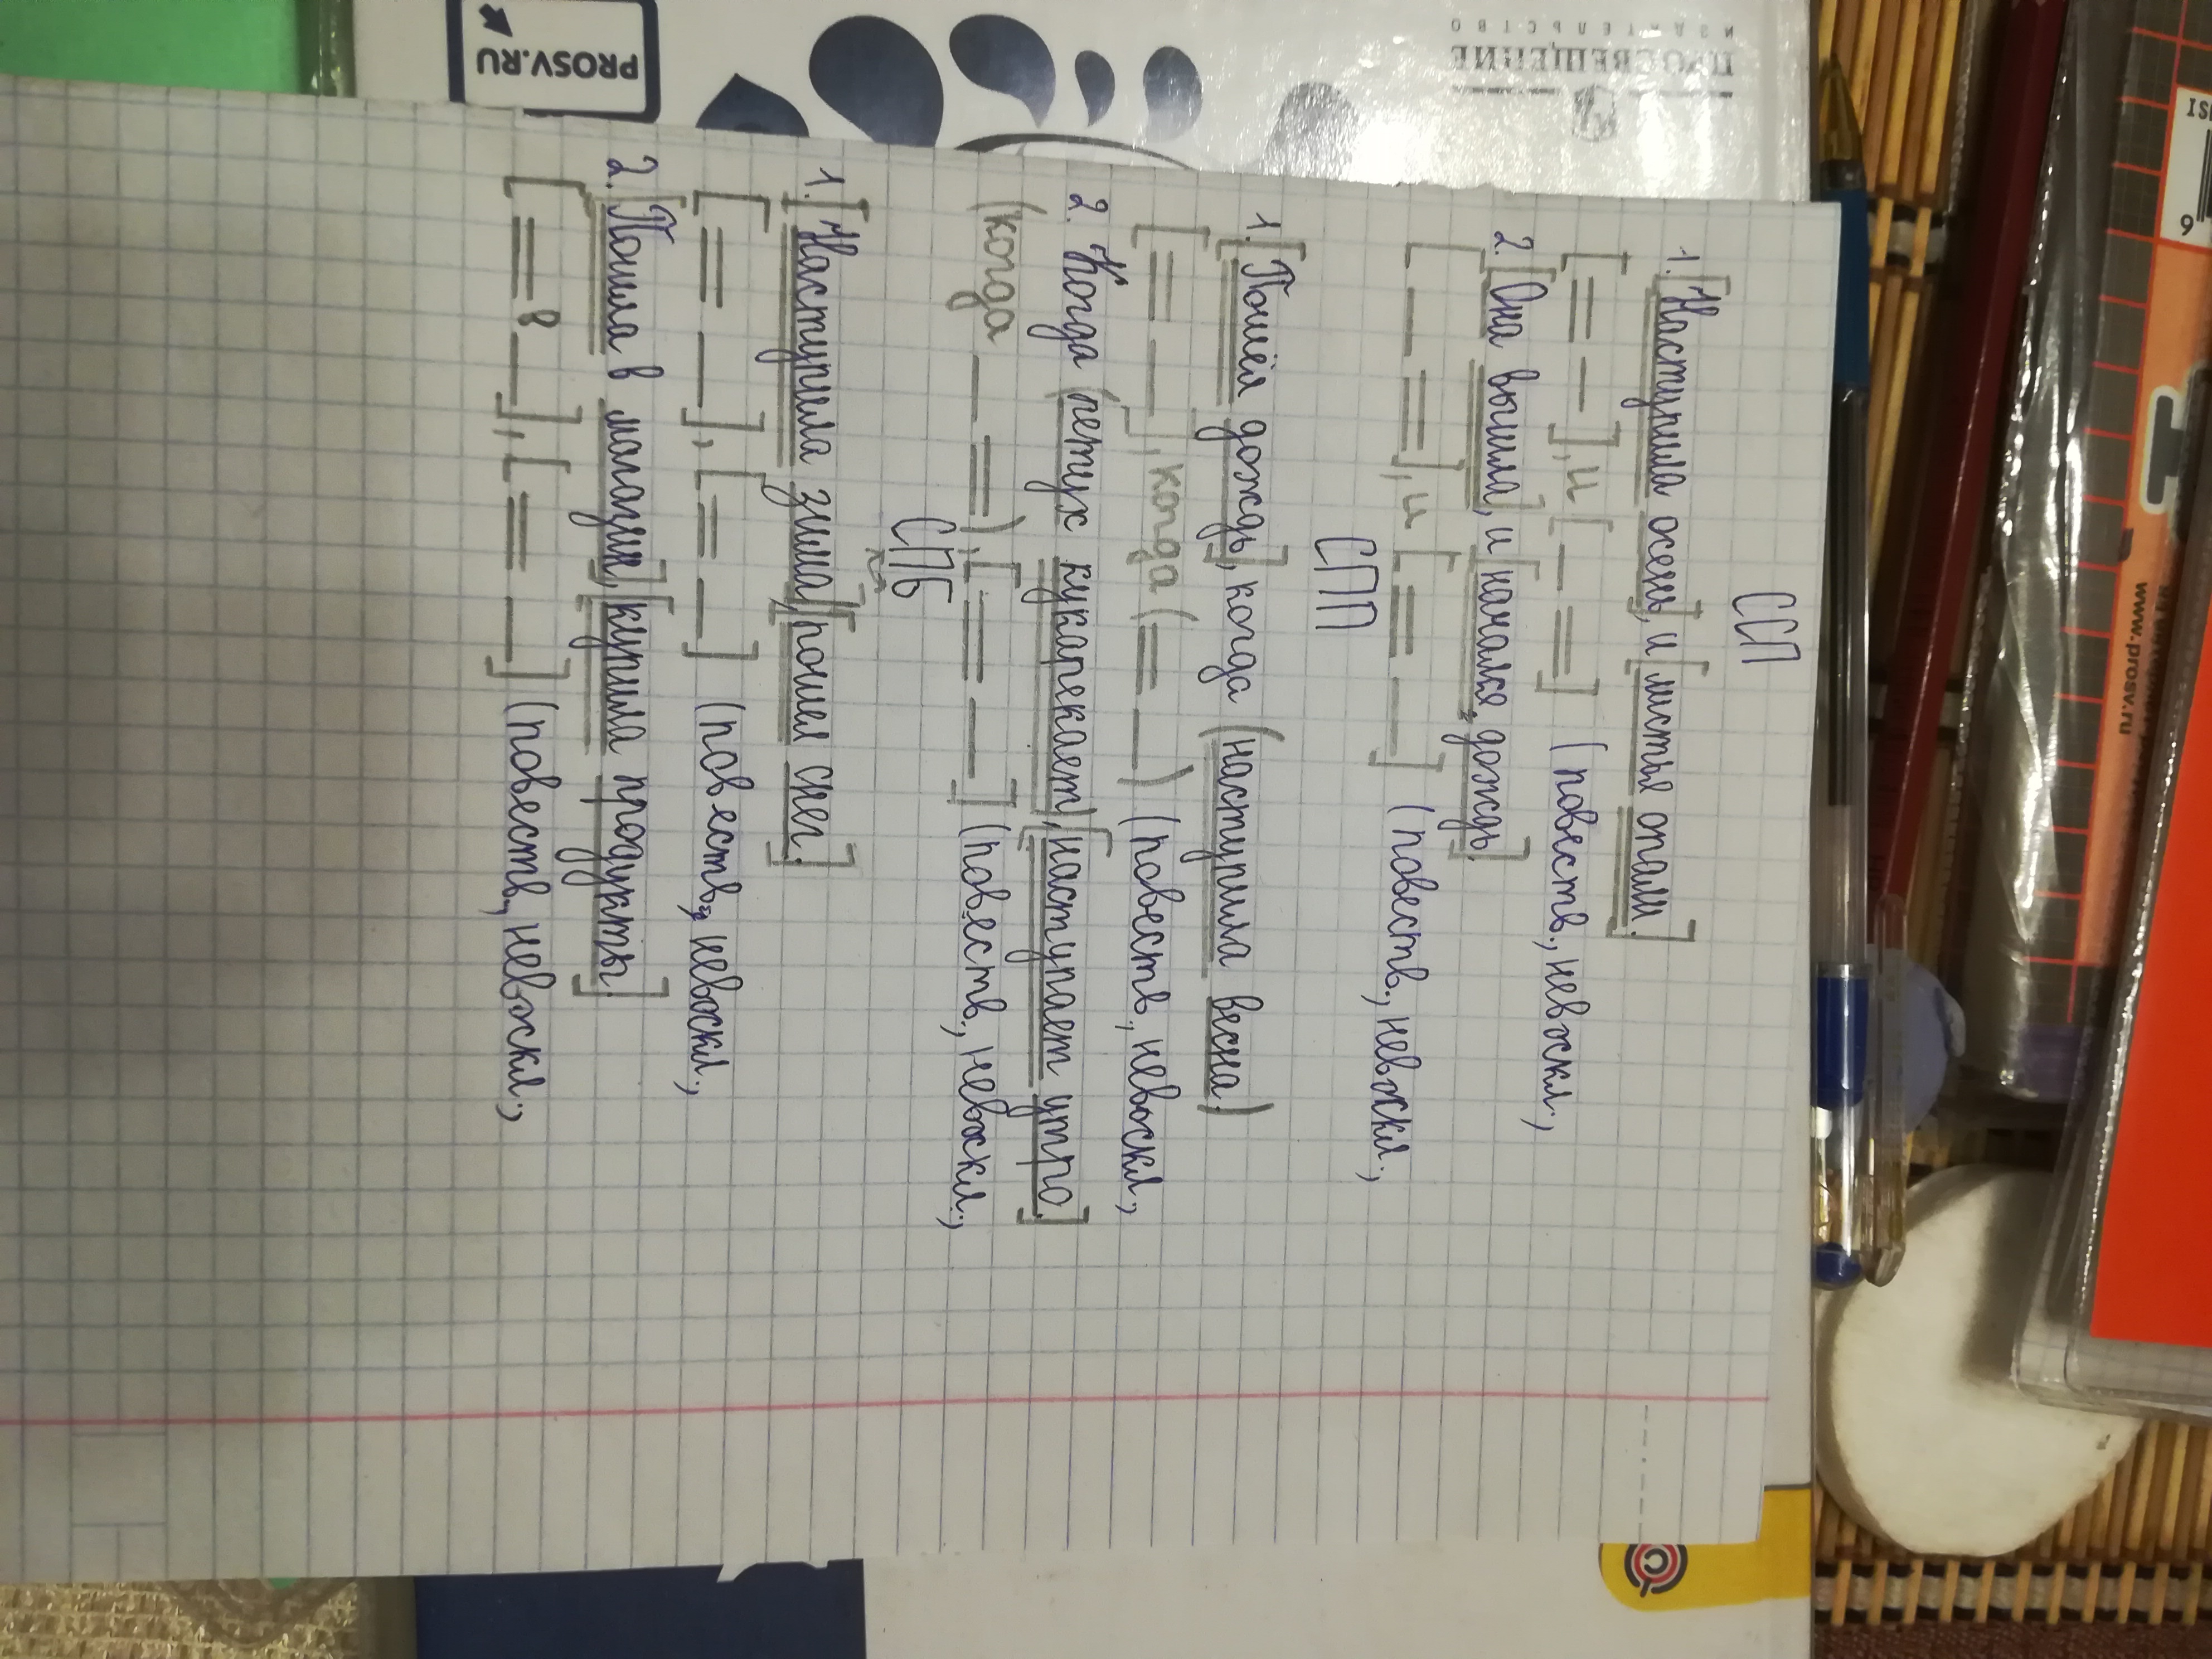 ССП
1. [Наступила осень], и [листья опали.]
[= –], и [– =] (повеств., невоскл.,
2. [Она вышла], и [начался дождь.]
[– =], и [= –] (повеств., невоскл.,
СПП
1. [Пошёл дождь], когда (наступила весна.)
[= –], когда (= –) (повеств., невоскл.,
2. Когда (петух кукарекает), [наступает утро.]
(когда – =), [= –] (повеств., невоскл.,
СПБ
1. [Наступила зима], [пошел снег.]
[= –], [= –] (повеств., невоскл.,
2. [Пошла в магазин], [купила продукты.]
[= в –], [= –] (повеств., невоскл.,
PROSV.RU
ПРОСВЕЩЕНИЕ
ИЗДАТЕЛЬСТВО
www.prosv.ru
ISI
9